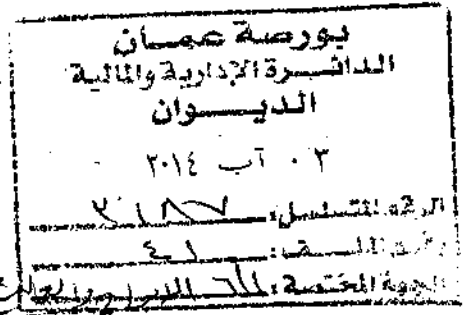 بورصة عمان
الدائرة الإدارية والمالية
الديوان
٠٣ آب ٢٠١٤
الرقم المتسلسل:
رقم الملف: ٤١
الجهة المختصة: